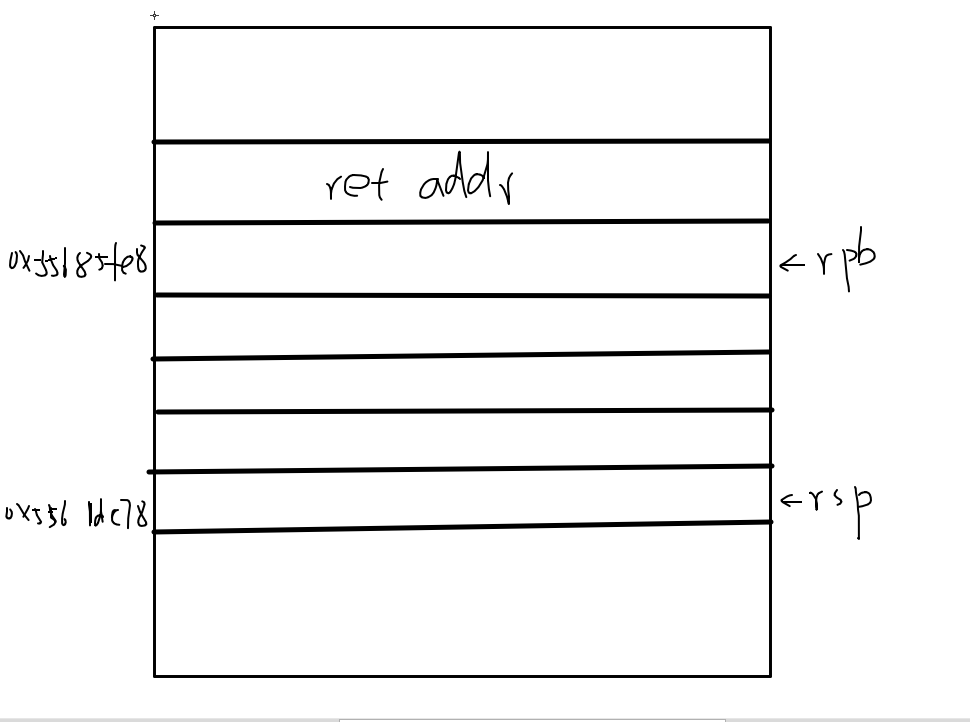 ret addr
0x55185fe8
← rpb
0x5561dc78
← rsp